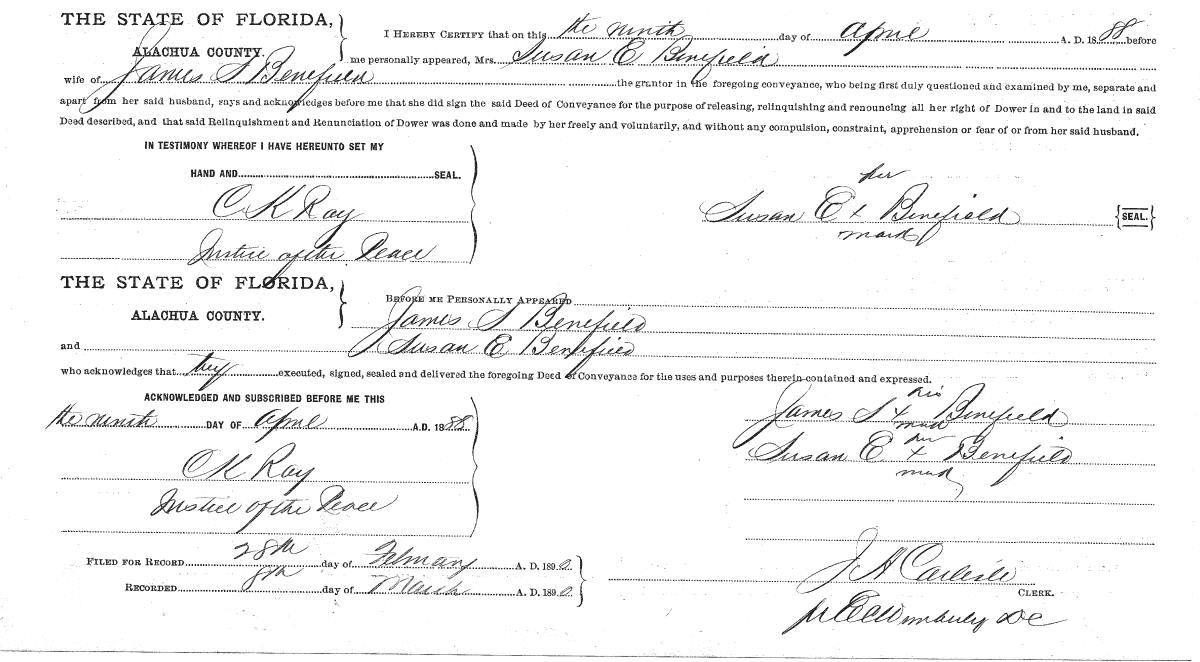 THE STATE OF FLORIDA,
ALACHUA COUNTY.
I HEREBY CERTIFY that on this the ninth day of April A. D. 1888 before
me personally appeared, Mrs. Susan E Benefield
wife of James S Benefield the grantor in the foregoing conveyance, who being first duly questioned and examined by me, separate and
apart from her said husband, says and acknowledges before me that she did sign the said Deed of Conveyance for the purpose of releasing, relinquishing and renouncing all her right of Dower in and to the land in said
Deed described, and that said Relinquishment and Renunciation of Dower was done and made by her freely and voluntarily, and without any compulsion, constraint, apprehension or fear of or from her said husband.
IN TESTIMONY WHEREOF I HAVE HEREUNTO SET MY
HAND AND SEAL.
C K Ray
Justice of the Peace
her
Susan E x Benefield {SEAL.}
mark
THE STATE OF FLORIDA,
ALACHUA COUNTY.
BEFORE ME PERSONALLY APPEARED
James S Benefield
and Susan E Benefield
who acknowledges that they executed, signed, sealed and delivered the foregoing Deed of Conveyance for the uses and purposes therein contained and expressed.
ACKNOWLEDGED AND SUBSCRIBED BEFORE ME THIS
the ninth DAY OF April A.D. 1888.
C K Ray
Justice of the Peace
his
James S x Benefield
mark
her
Susan E x Benefield
mark
FILED FOR RECORD 28th day of February A. D. 1890
RECORDED 8th day of March A. D. 1890
J A Carlisle
CLERK.
Wimberly DC